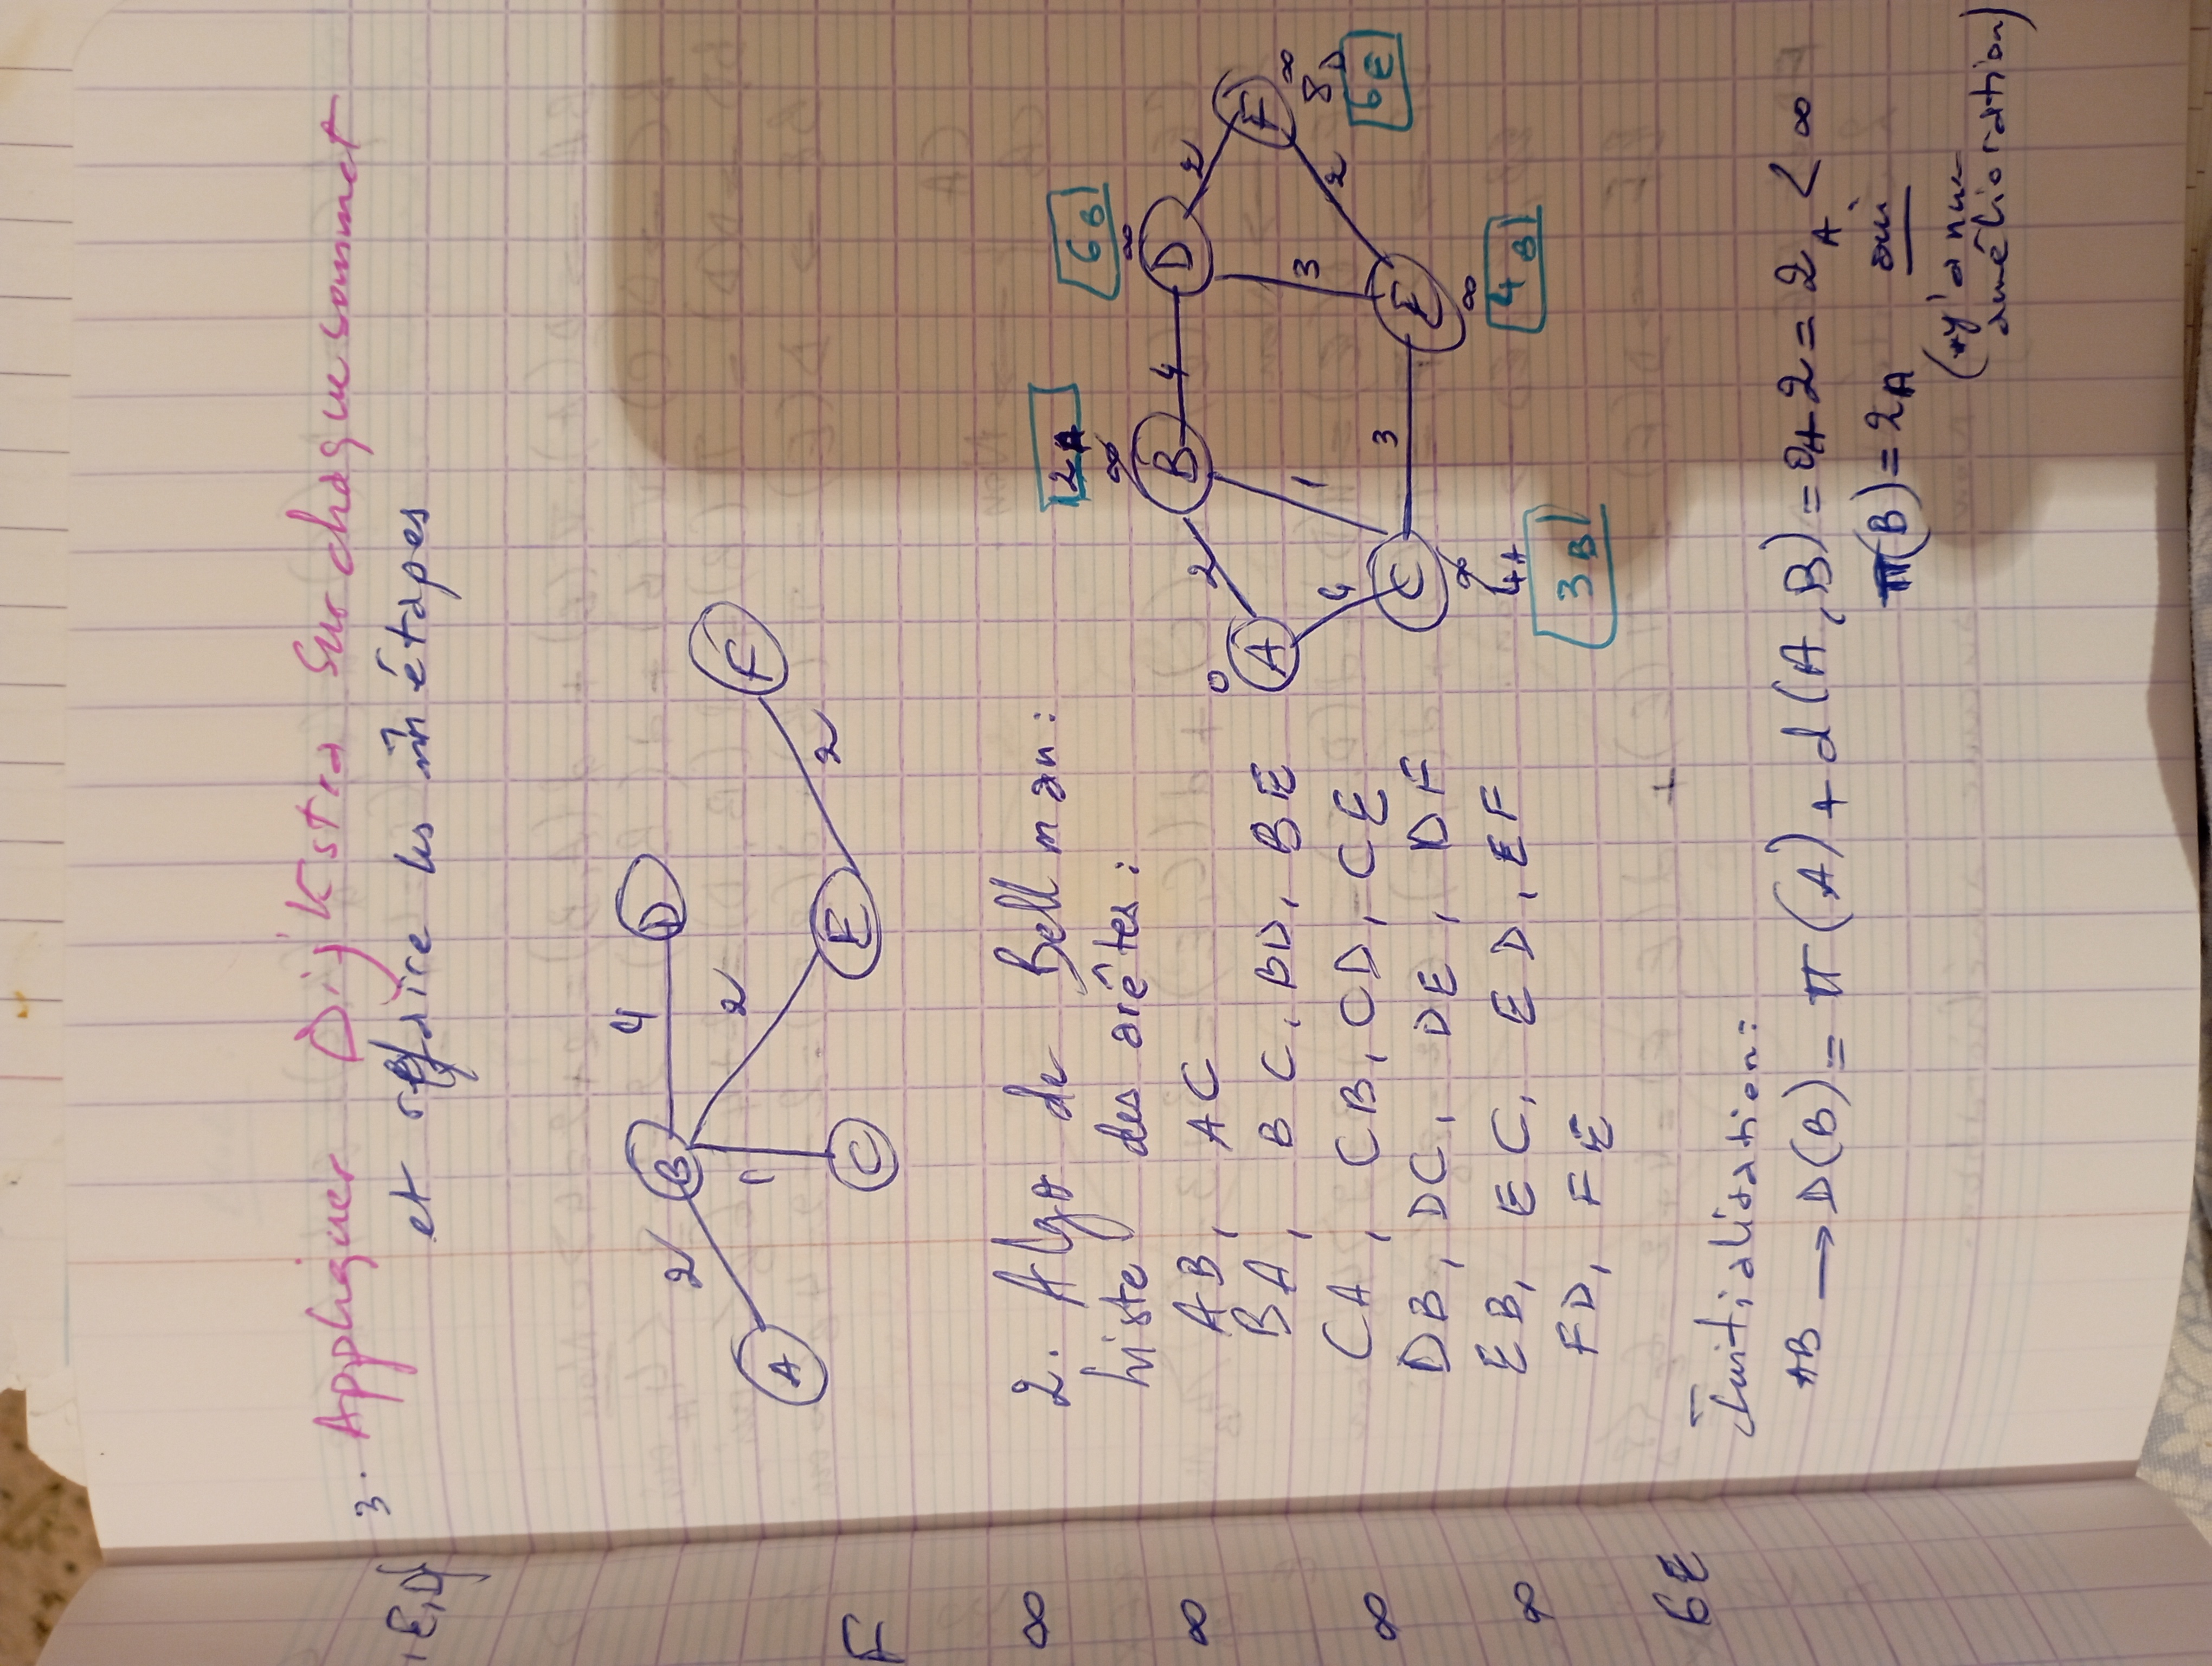 3. Appliquer Dijkstra sur chaque sommet
et refaire les m̂ étapes
A 2 B 4 D
1 2
C E 2 F
2. Algo de Bellman:
liste des arêtes:
AB, AC
BA, BC, BD, BE
CA, CB, CD, CE
DB, DC, DE, DF
EB, EC, ED, EF
FD, FE
2A 6B
∞ ∞
0 A 2 B 4 D 2 F ∞
4 1 3 2 8D
C 3 E 6E
∞ ∞
4A 4B
3B
Initialisation:
AB → D(B) = π(A) + d(A, B) = 0 + 2 = 2A < ∞
π(B) = 2A oui
(y'a une
amélioration)
, E, D}
F
∞
∞
∞
∞
6E